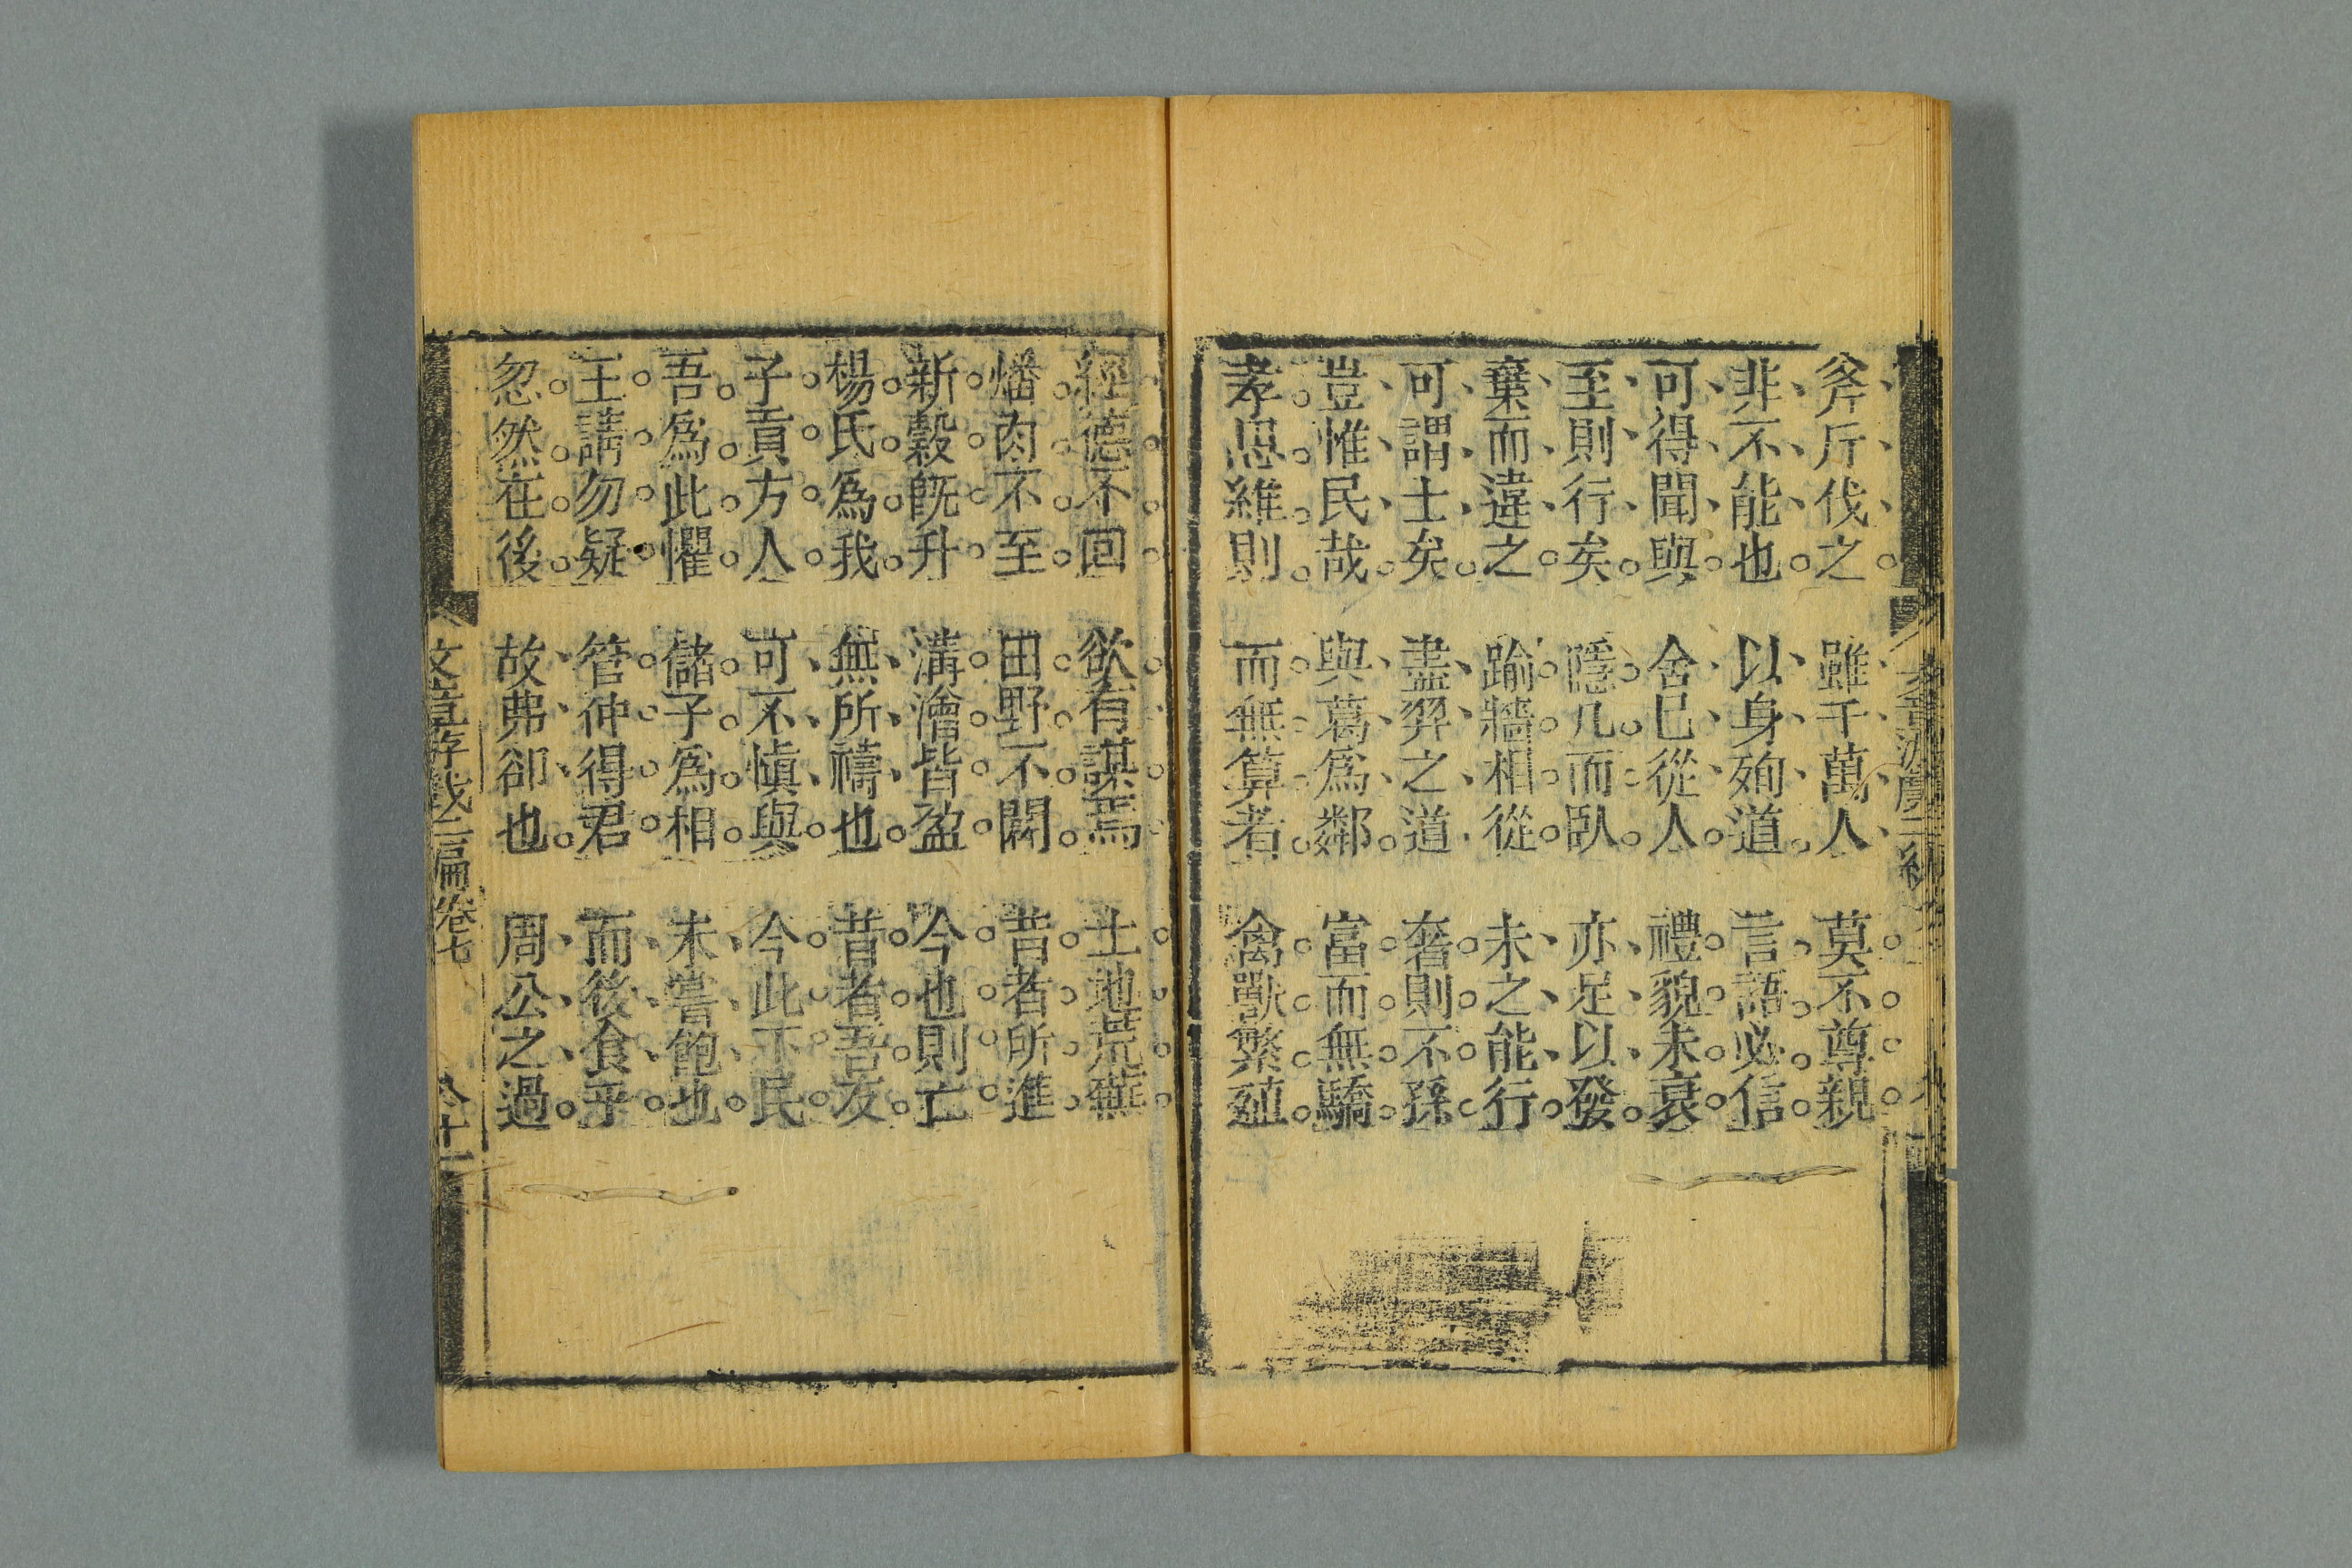 斧斤伐之 雖千萬人 莫不尊親
非不能也 以身殉道 言語必信
可得聞與 舍已從人 禮貌未衰
至則行矣 隱几而臥 亦足以發
棄而違之 踰牆相從 未之能行
可謂士矣 盡羿之道 奢則不孫
豈惟民哉 與葛爲鄰 富而無驕
孝思維則 而無算者 禽獸繁殖
經德不回 欲有謀焉 土地荒蕪
燔肉不至 田野不闢 昔者所進
新穀旣升 溝澮皆盈 今也則亡
楊氏爲我 無所禱也 昔者吾友
子貢方人 可不愼與 今此下民
吾爲此懼 儲子爲相 未嘗飽也
王請勿疑 管仲得君 而後食乎
忽然在後 故弗卻也 周公之過
文章游戲二編 卷七 八十一